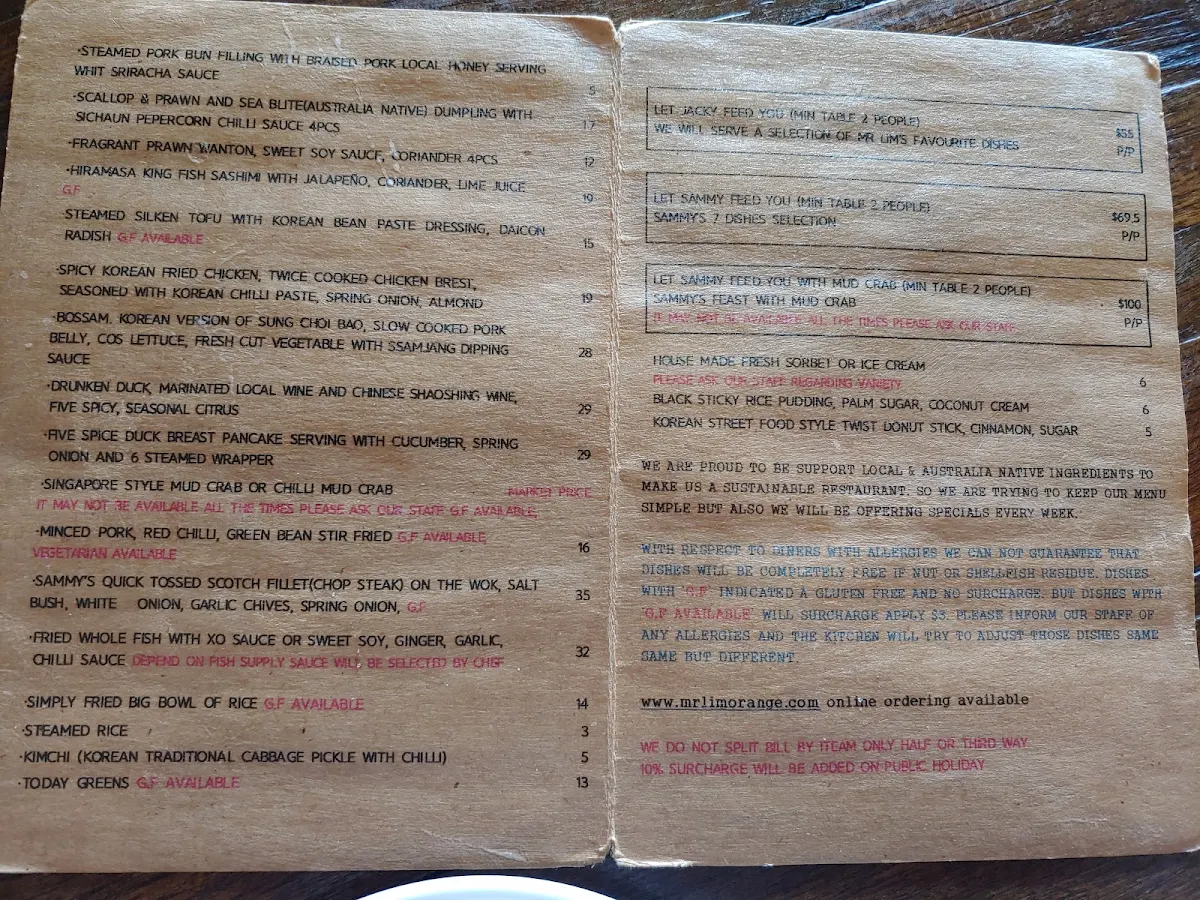 ·STEAMED PORK BUN FILLING WITH BRAISED PORK LOCAL HONEY SERVING
WHIT SRIRACHA SAUCE 5
·SCALLOP & PRAWN AND SEA BLITE(AUSTRALIA NATIVE) DUMPLING WITH
SICHAUN PEPERCORN CHILLI SAUCE 4PCS 17
·FRAGRANT PRAWN WANTON, SWEET SOY SAUCE, CORIANDER 4PCS 12
·HIRAMASA KING FISH SASHIMI WITH JALAPEÑO, CORIANDER, LIME JUICE
G.F 19
STEAMED SILKEN TOFU WITH KOREAN BEAN PASTE DRESSING, DAICON
RADISH G.F AVAILABLE 15
·SPICY KOREAN FRIED CHICKEN, TWICE COOKED CHICKEN BREST,
SEASONED WITH KOREAN CHILLI PASTE, SPRING ONION, ALMOND 19
·BOSSAM. KOREAN VERSION OF SUNG CHOI BAO, SLOW COOKED PORK
BELLY, COS LETTUCE, FRESH CUT VEGETABLE WITH SSAMJANG DIPPING 28
SAUCE
·DRUNKEN DUCK, MARINATED LOCAL WINE AND CHINESE SHAOSHING WINE,
FIVE SPICY, SEASONAL CITRUS 29
·FIVE SPICE DUCK BREAST PANCAKE SERVING WITH CUCUMBER, SPRING
ONION AND 6 STEAMED WRAPPER 29
·SINGAPORE STYLE MUD CRAB OR CHILLI MUD CRAB MARKET PRICE
IT MAY NOT BE AVAILABLE ALL THE TIMES PLEASE ASK OUR STAFF G.F AVAILABLE,
·MINCED PORK, RED CHILLI, GREEN BEAN STIR FRIED G.F AVAILABLE,
VEGETARIAN AVAILABLE 16
·SAMMY'S QUICK TOSSED SCOTCH FILLET(CHOP STEAK) ON THE WOK, SALT
BUSH, WHITE ONION, GARLIC CHIVES, SPRING ONION, G.F 35
·FRIED WHOLE FISH WITH XO SAUCE OR SWEET SOY, GINGER, GARLIC,
CHILLI SAUCE DEPEND ON FISH SUPPLY SAUCE WILL BE SELECTED BY CHEF 32
·SIMPLY FRIED BIG BOWL OF RICE G.F AVAILABLE 14
·STEAMED RICE 3
·KIMCHI (KOREAN TRADITIONAL CABBAGE PICKLE WITH CHILLI) 5
·TODAY GREENS G.F AVAILABLE 13
LET JACKY FEED YOU (MIN TABLE 2 PEOPLE)
WE WILL SERVE A SELECTION OF MR LIM'S FAVOURITE DISHES $55
P/P
LET SAMMY FEED YOU (MIN TABLE 2 PEOPLE)
SAMMY'S 7 DISHES SELECTION $69.5
P/P
LET SAMMY FEED YOU WITH MUD CRAB (MIN TABLE 2 PEOPLE)
SAMMY'S FEAST WITH MUD CRAB $100
IT MAY NOT BE AVAILABLE ALL THE TIMES PLEASE ASK OUR STAFF P/P
HOUSE MADE FRESH SORBET OR ICE CREAM
PLEASE ASK OUR STAFF REGARDING VARIETY 6
BLACK STICKY RICE PUDDING, PALM SUGAR, COCONUT CREAM 6
KOREAN STREET FOOD STYLE TWIST DONUT STICK, CINNAMON, SUGAR 5
WE ARE PROUD TO BE SUPPORT LOCAL & AUSTRALIA NATIVE INGREDIENTS TO
MAKE US A SUSTAINABLE RESTAURANT. SO WE ARE TRYING TO KEEP OUR MENU
SIMPLE BUT ALSO WE WILL BE OFFERING SPECIALS EVERY WEEK.
WITH RESPECT TO DINERS WITH ALLERGIES WE CAN NOT GUARANTEE THAT
DISHES WILL BE COMPLETELY FREE IF NUT OR SHELLFISH RESIDUE. DISHES
WITH 'G.F' INDICATED A GLUTEN FREE AND NO SURCHARGE. BUT DISHES WITH
'G.F AVAILABLE' WILL SURCHARGE APPLY $3. PLEASE INFORM OUR STAFF OF
ANY ALLERGIES AND THE KITCHEN WILL TRY TO ADJUST THOSE DISHES SAME
SAME BUT DIFFERENT.
www.mrlimorange.com online ordering available
WE DO NOT SPLIT BILL BY ITEAM ONLY HALF OR THIRD WAY
10% SURCHARGE WILL BE ADDED ON PUBLIC HOLIDAY